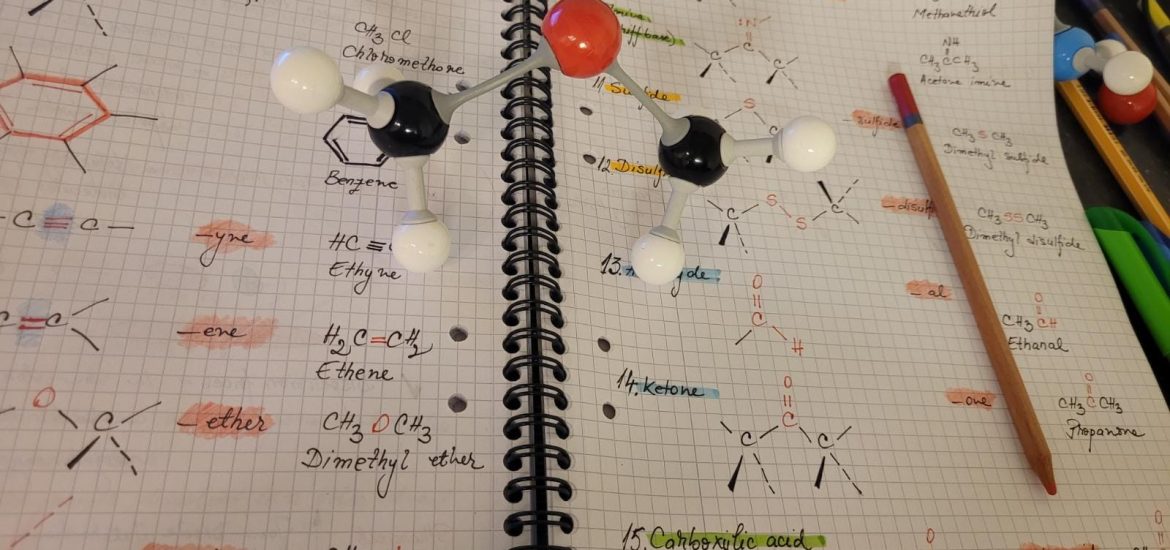 CH3 Cl
Chloromethane
Benzene
C≡C
-yne
HC≡
Ethyne
-ene
H2C=CH2
Ethene
O
C
-ether
CH3 O CH3
Dimethyl ether
Methanethiol
(Schiff base)
:N
C
NH
CH3CCH3
Acetone imine
11. Sulfide
S
C
sulfide
CH3 S CH3
Dimethyl sulfide
12. Disulf
C
S
S
C
-disulf
CH3SSCH3
Dimethyl disulfide
13.
yde
O
C
H
-al
O
CH3 CH
Ethanal
14. Ketone
O
C
C
C
-one
O
CH3CCH3
Propanone
15. Carboxylic acid
O
O